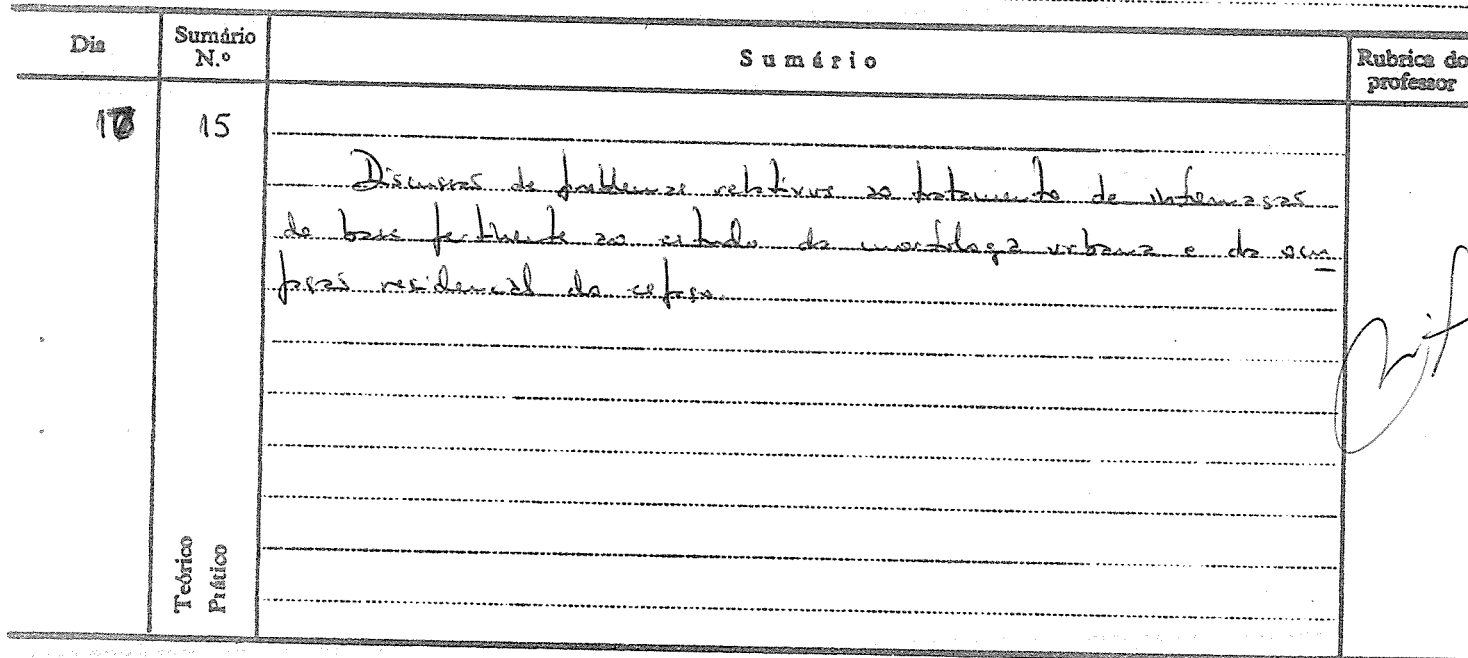 Dia
Sumário N.º
Sumário
Rubrica do professor
15
Discussão de problemas relativos ao tratamento de informação
de base pertinente ao estudo da morfologia urbana e da ocu
pação residencial do espaço.
Teórico
Prático